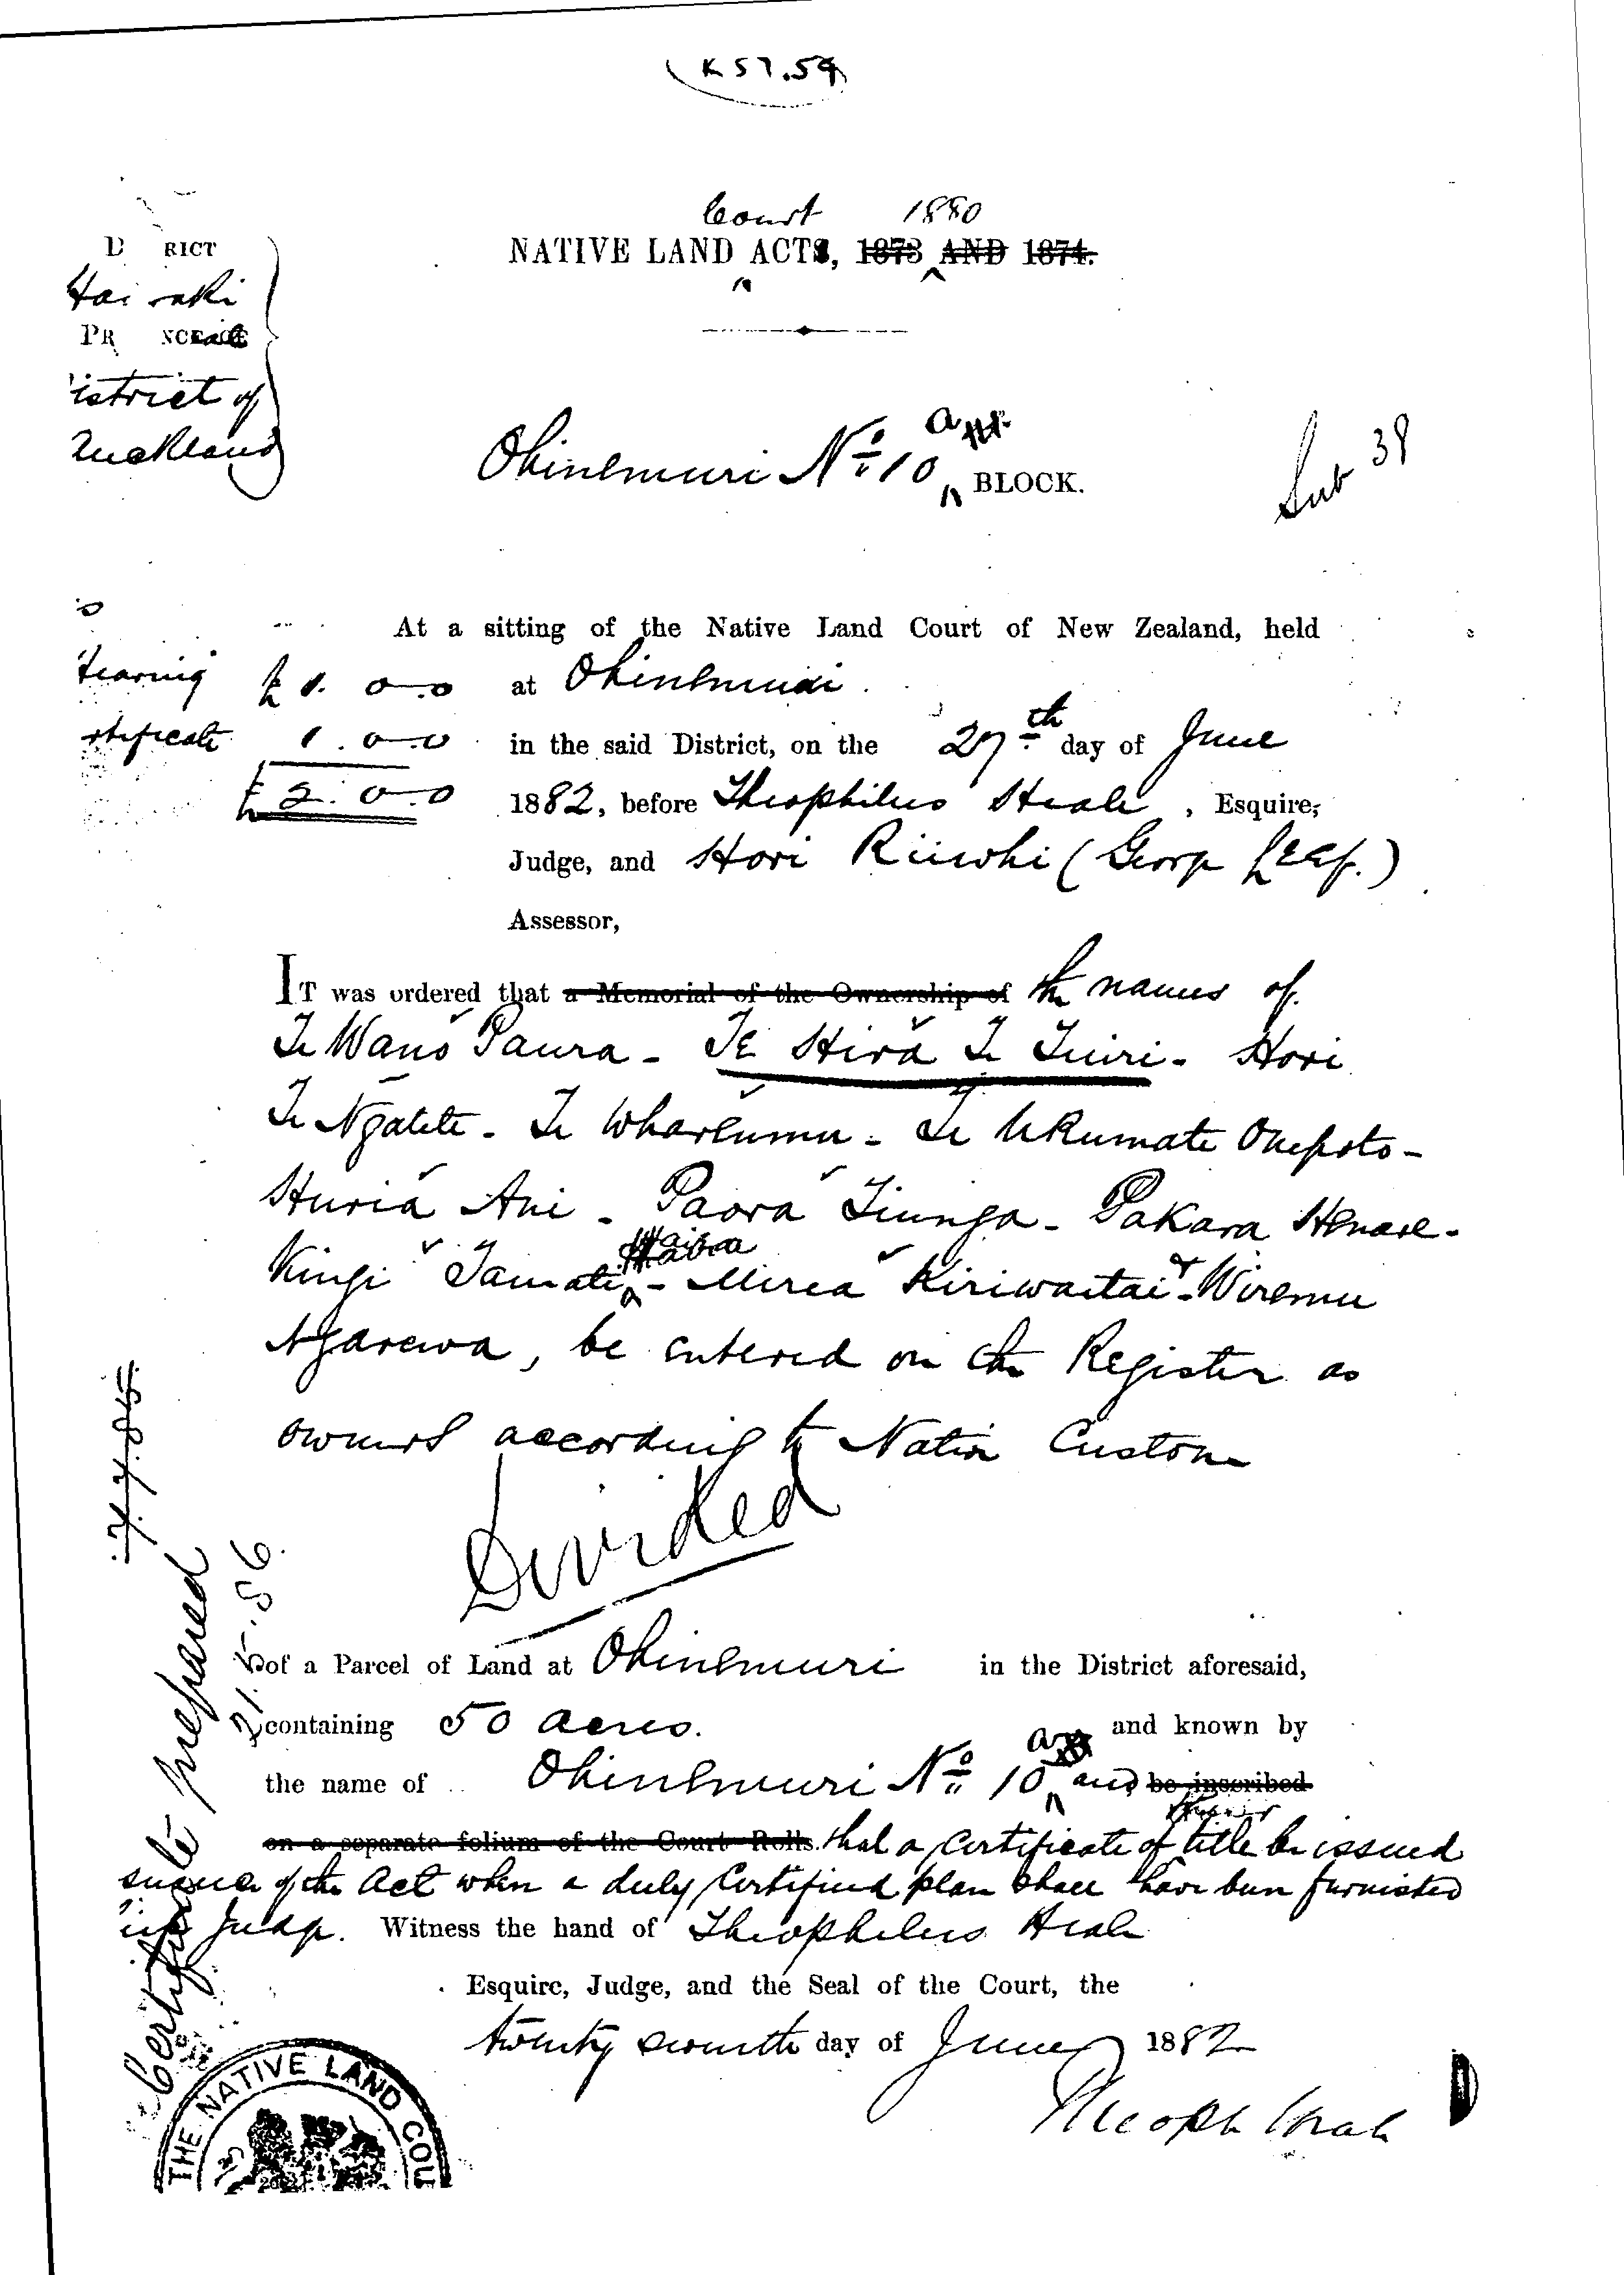 K 57.59
Court 1880
NATIVE LAND ACTS, 1873 AND 1874.
D RICT
Hai raki
PR NCE
istrict of
uckland
Ohinemuri No 10 a BLOCK.
Sub 38
At a sitting of the Native Land Court of New Zealand, held
earing £ 1. 0-.0 at Ohinemuri
rtificate 1.0-.0 in the said District, on the 27th day of June
£ 2.0-.0 1882, before Theophilus Heale, Esquire,
Judge, and Hori Ririwhi (George Leaf.)
Assessor,
IT was ordered that a Memorial of the Ownership of the names of
Te Wano Paura - Te Hira Te Tuiri - Hori
Te Ngatete - Te Wharenumu - Te Ukumate Onepoto -
Huria Ani - Paora Tiunga - Pakara Henare -
Waira
Kingi Tamati - Mirea Kiriwaitai & Wiremu
Ngarewa, be entered on the Register as
owners according to Native Custom
Divided
7.7.85
Certificate prepared
21.5.86.
of a Parcel of Land at Ohinemuri in the District aforesaid,
containing 50 acres. and known by
the name of Ohinemuri No 10 a and be inscribed
on a separate folium of the Court Rolls. that a Certificate of title be issued
suance of the Act when a duly Certified plan shall have been furnished
Judge. Witness the hand of Theophilus Heale
Esquire, Judge, and the Seal of the Court, the
twenty seventh day of June 1882
Theoph Heale
THE NATIVE LAND COU